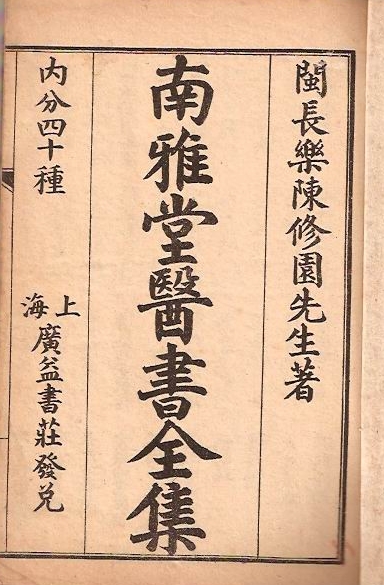 閩長樂陳修園先生著
南雅堂醫書全集
内分四十種
上海廣益書莊發兌